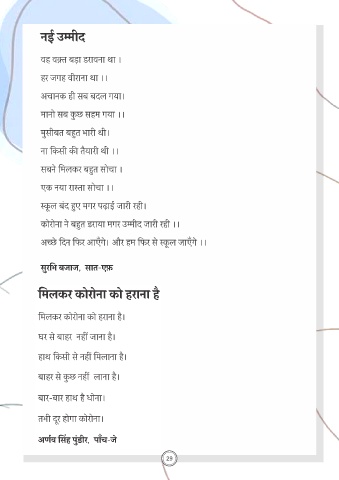 नई उम्मीद
वह वक़्त बड़ा डरावना था ।
हर जगह वीराना था ।।
अचानक ही सब बदल गया।
मानो सब कुछ सहम गया ।।
मुसीबत बहुत भारी थी।
ना किसी की तैयारी थी ।।
सबने मिलकर बहुत सोचा ।
एक नया रास्ता सोचा ।।
स्कूल बंद हुए मगर पढ़ाई जारी रही।
कोरोना ने बहुत डराया मगर उम्मीद जारी रही ।।
अच्छे दिन फिर आएँगे। और हम फिर से स्कूल जाएँगे ।।
सुरभि बजाज, सात-एफ़
मिलकर कोरोना को हराना है
मिलकर कोरोना को हराना है।
घर से बाहर नहीं जाना है।
हाथ किसी से नहीं मिलाना है।
बाहर से कुछ नहीं लाना है।
बार-बार हाथ है धोना।
तभी दूर होगा कोरोना।
अर्णव सिंह पुंडीर, पाँच-जे
29